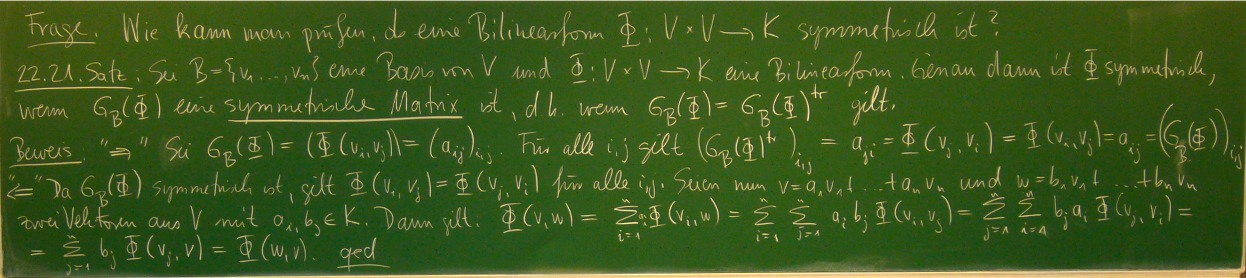 Frage. Wie kann man prüfen, ob eine Bilinearform Φ: V × V → K symmetrisch ist?
22.21. Satz: Sei B = {v₁, ..., vₙ} eine Basis von V und Φ: V × V → K eine Bilinearform. Genau dann ist Φ symmetrisch,
wenn G_B(Φ) eine symmetrische Matrix ist, d.h. wenn G_B(Φ) = G_B(Φ)^tr gilt.
Beweis. "⇒" Sei G_B(Φ) = (Φ(v_i, v_j)) = (a_ij)_i,j. Für alle i,j gilt (G_B(Φ)^tr)_i,j = a_ji = Φ(v_j, v_i) = Φ(v_i, v_j) = a_ij = (G_B(Φ))_i,j
"⇐" Da G_B(Φ) symmetrisch ist, gilt Φ(v_i, v_j) = Φ(v_j, v_i) für alle i,j. Seien nun v = a₁v₁ + ... + aₙvₙ und w = b₁v₁ + ... + bₙvₙ
zwei Vektoren aus V mit a_i, b_j ∈ K. Dann gilt: Φ(v, w) = Σ_{i=1}^n a_i Φ(v_i, w) = Σ_{i=1}^n Σ_{j=1}^n a_i b_j Φ(v_i, v_j) = Σ_{j=1}^n Σ_{i=1}^n b_j a_i Φ(v_j, v_i) =
= Σ_{j=1}^n b_j Φ(v_j, v) = Φ(w, v). qed